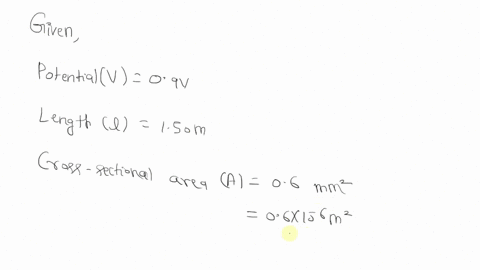 Given,
Potential (V) = 0.9V
Length (l) = 1.50m
Cross-sectional area (A) = 0.6 mm²
= 0.6×10⁻⁶m²